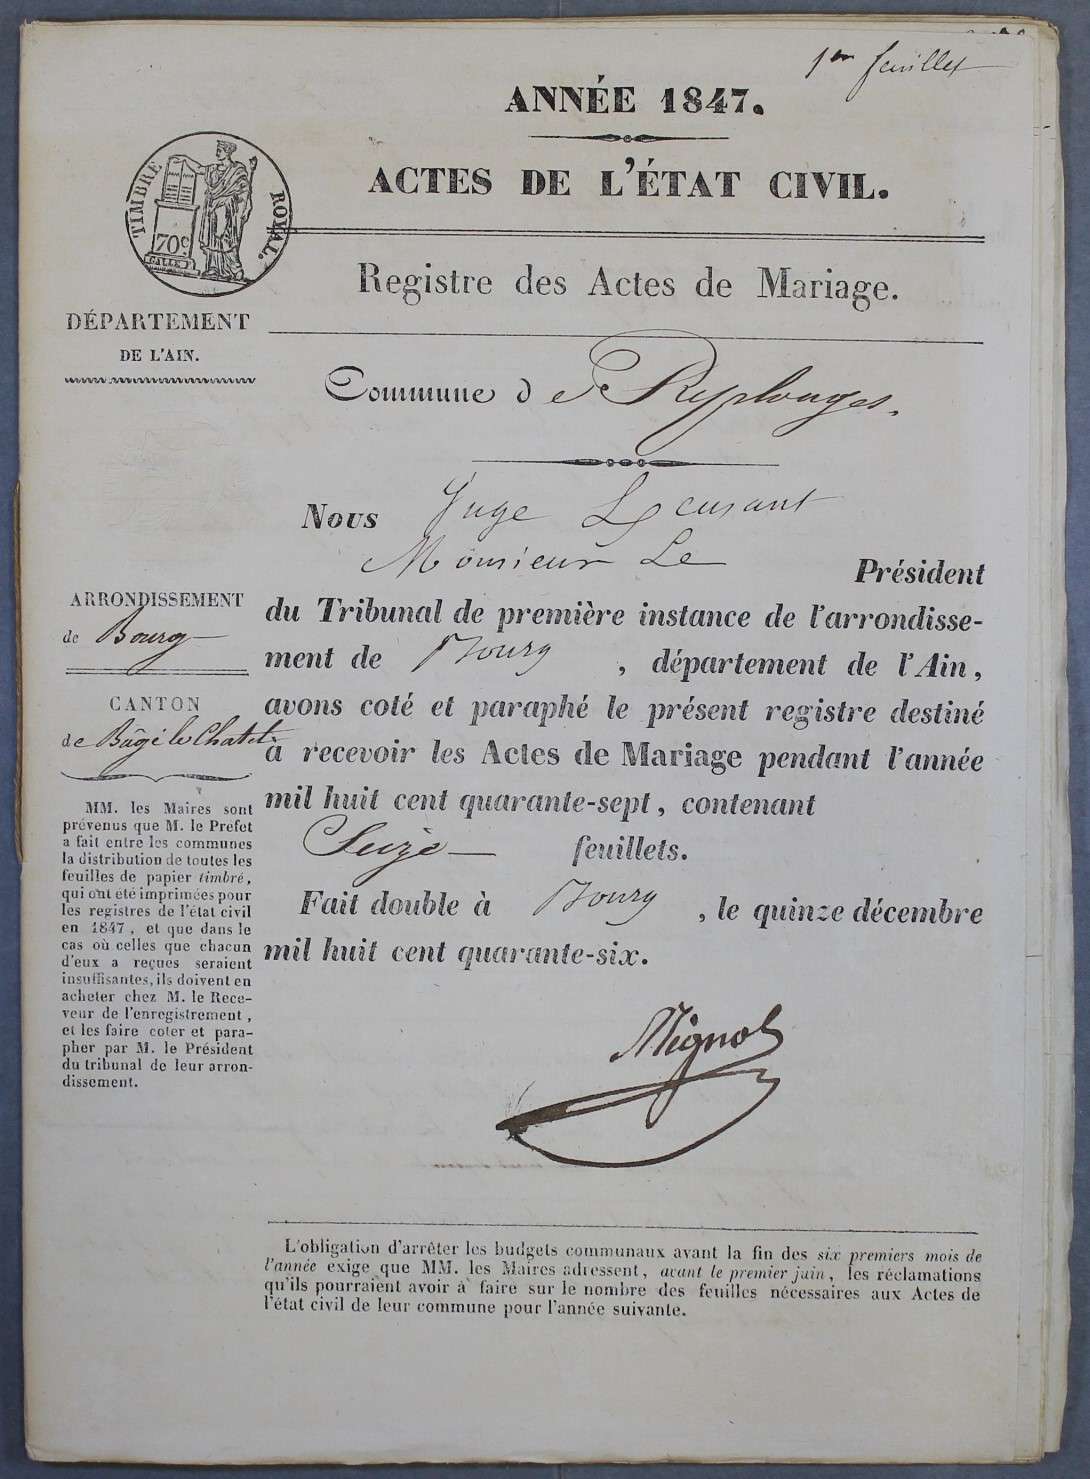 1er feuillet
ANNÉE 1847.
ACTES DE L'ÉTAT CIVIL.
TIMBRE ROYAL.
70c
Registre des Actes de Mariage.
DÉPARTEMENT
DE L'AIN.
Commune de Replonges.
Nous Juge
Monsieur Le Président
du Tribunal de première instance de l'arrondisse-
ment de Bourg, département de l'Ain,
avons coté et paraphé le présent registre destiné
à recevoir les Actes de Mariage pendant l'année
mil huit cent quarante-sept, contenant
Seize feuillets.
Fait double à Bourg, le quinze décembre
mil huit cent quarante-six.
Mignot
ARRONDISSEMENT
de Bourg
CANTON
de Bâgé le Chatel
MM. les Maires sont
prévenus que M. le Préfet
a fait entre les communes
la distribution de toutes les
feuilles de papier timbré,
qui ont été imprimées pour
les registres de l'état civil
en 1847, et que dans le
cas où celles que chacun
d'eux a reçues seraient
insuffisantes, ils doivent en
acheter chez M. le Rece-
veur de l'enregistrement,
et les faire coter et para-
pher par M. le Président
du tribunal de leur arron-
dissement.
L'obligation d'arrêter les budgets communaux avant la fin des six premiers mois de
l'année exige que MM. les Maires adressent, avant le premier juin, les réclamations
qu'ils pourraient avoir à faire sur le nombre des feuilles nécessaires aux Actes de
l'état civil de leur commune pour l'année suivante.